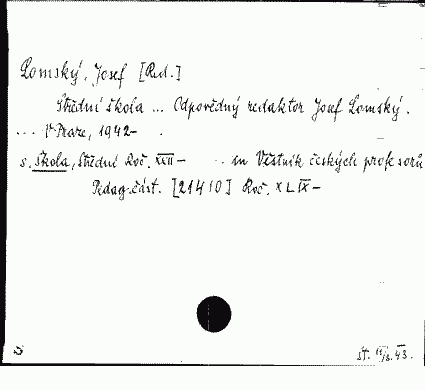 Lomský, Josef [Red.]
Střední škola ... Odpovědný redaktor Josef Lomský.
... V Praze, 1942-
s. Škola, Střední Roč. XXII- ... in Věstník českých profesorů
Pedag. část. [21410] Roč. XLIX-
St.